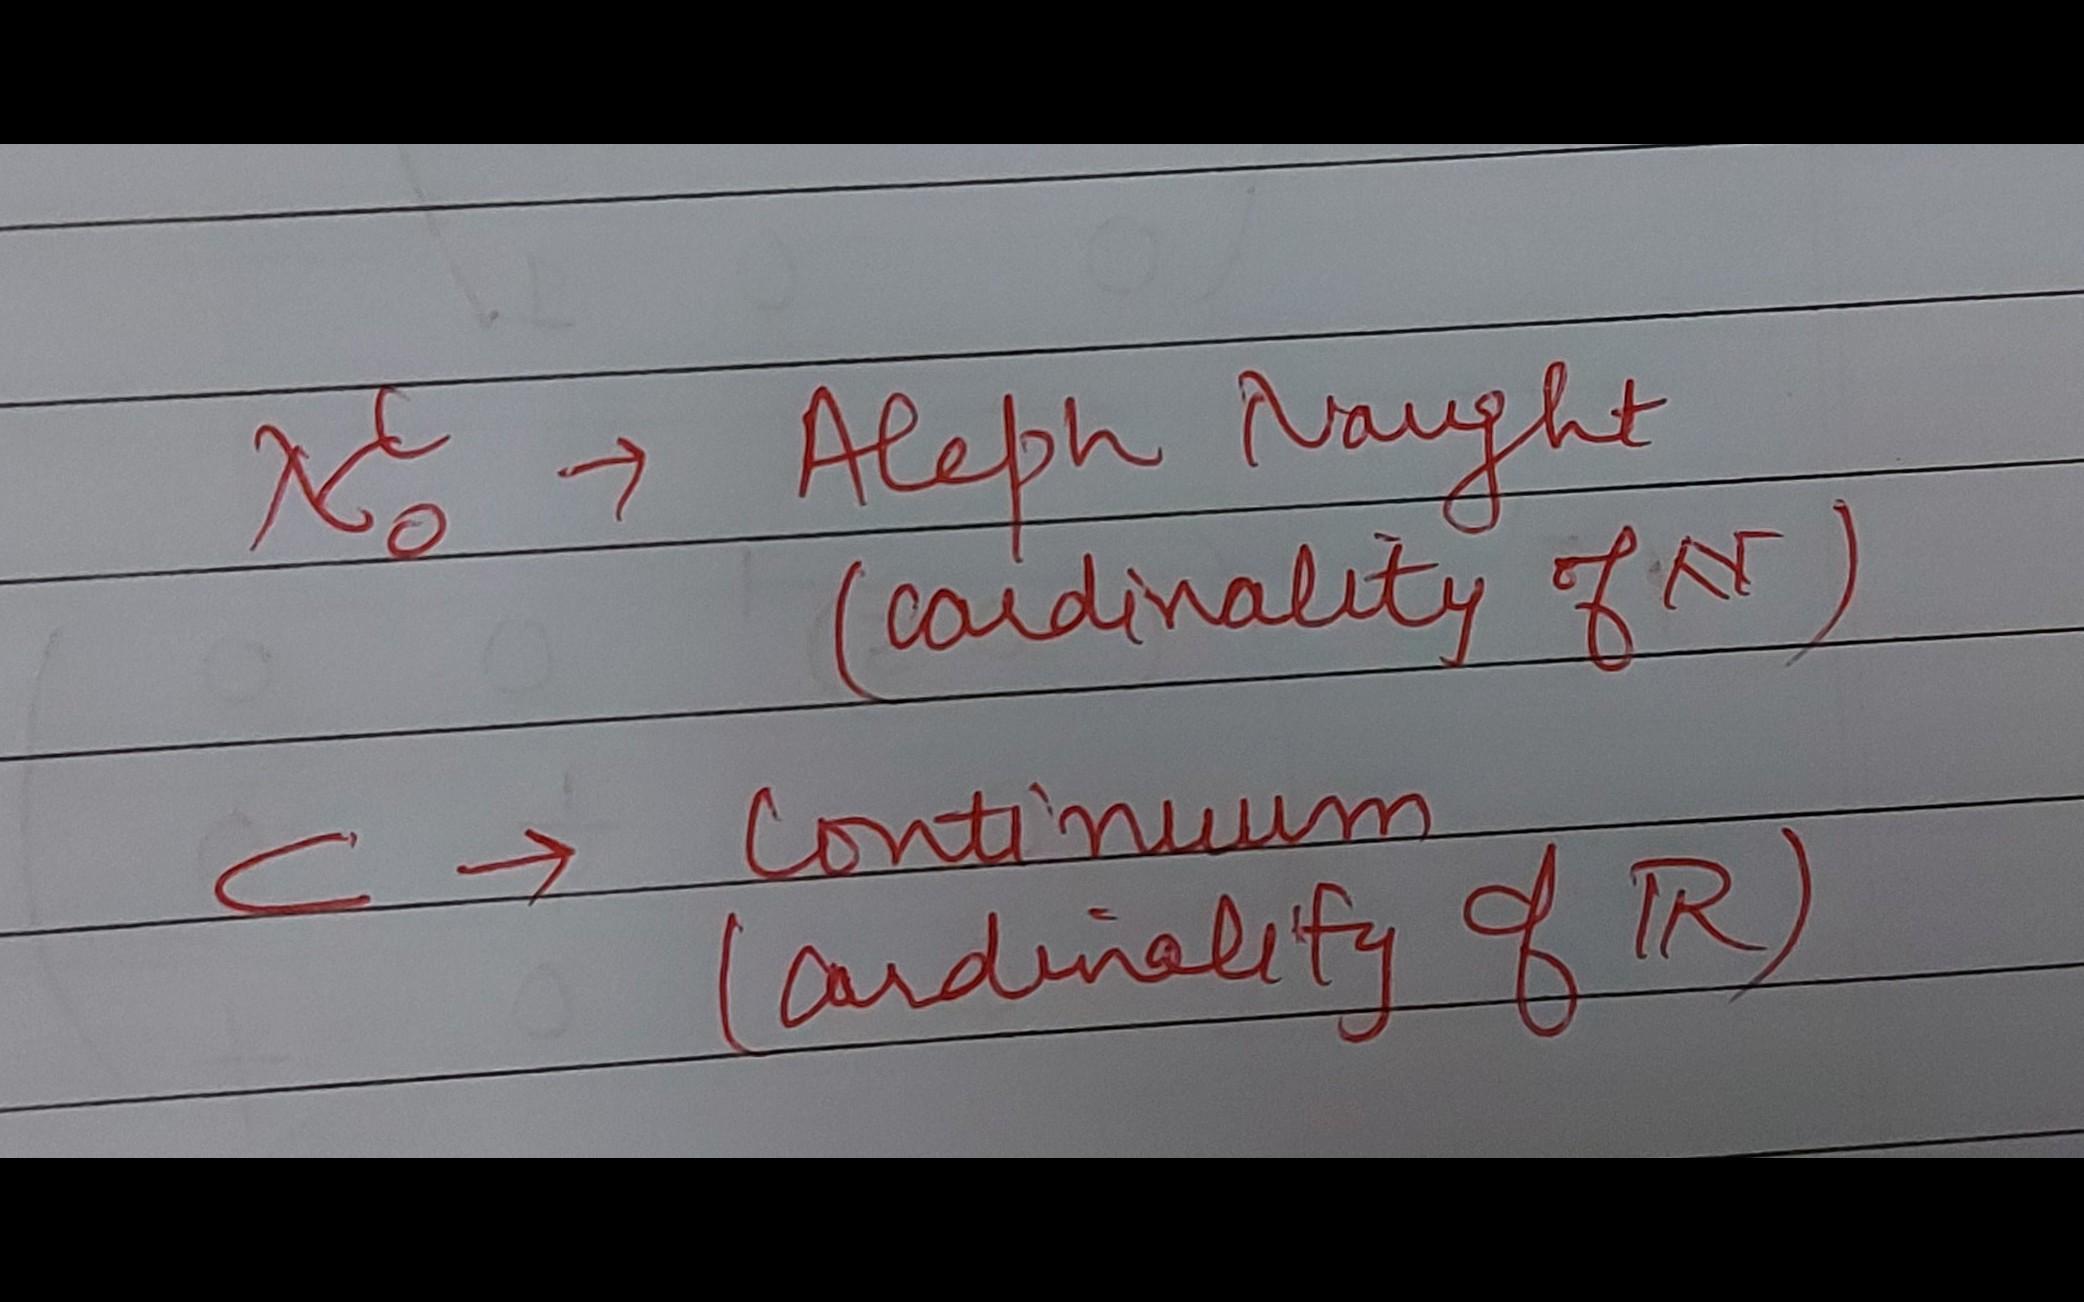 ℵ₀ → Aleph Naught
(cardinality of ℕ)
C → Continuum
(cardinality of ℝ)